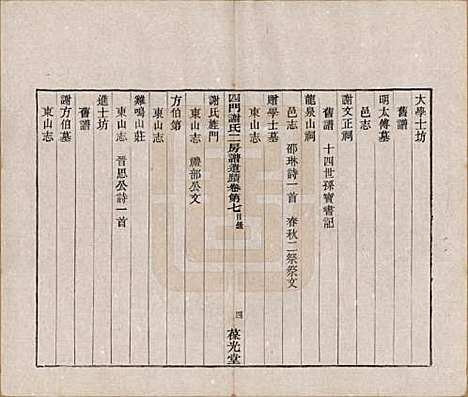 大學士坊
舊譜
明太傅墓
邑志
謝文正祠
舊譜 十四世孫寶書記
龍泉山祠
邑志 邵琳詩一首 春秋二祭祭文
贈學士墓
東山志
四門謝氏二房譜遺蹟卷第七 目錄 四 葆光堂
謝氏旌門
東山志 禮部公文
方伯第
東山志
雞鳴山莊
東山志 晉思公詩一首
進士坊
舊譜
謝方伯墓
東山志